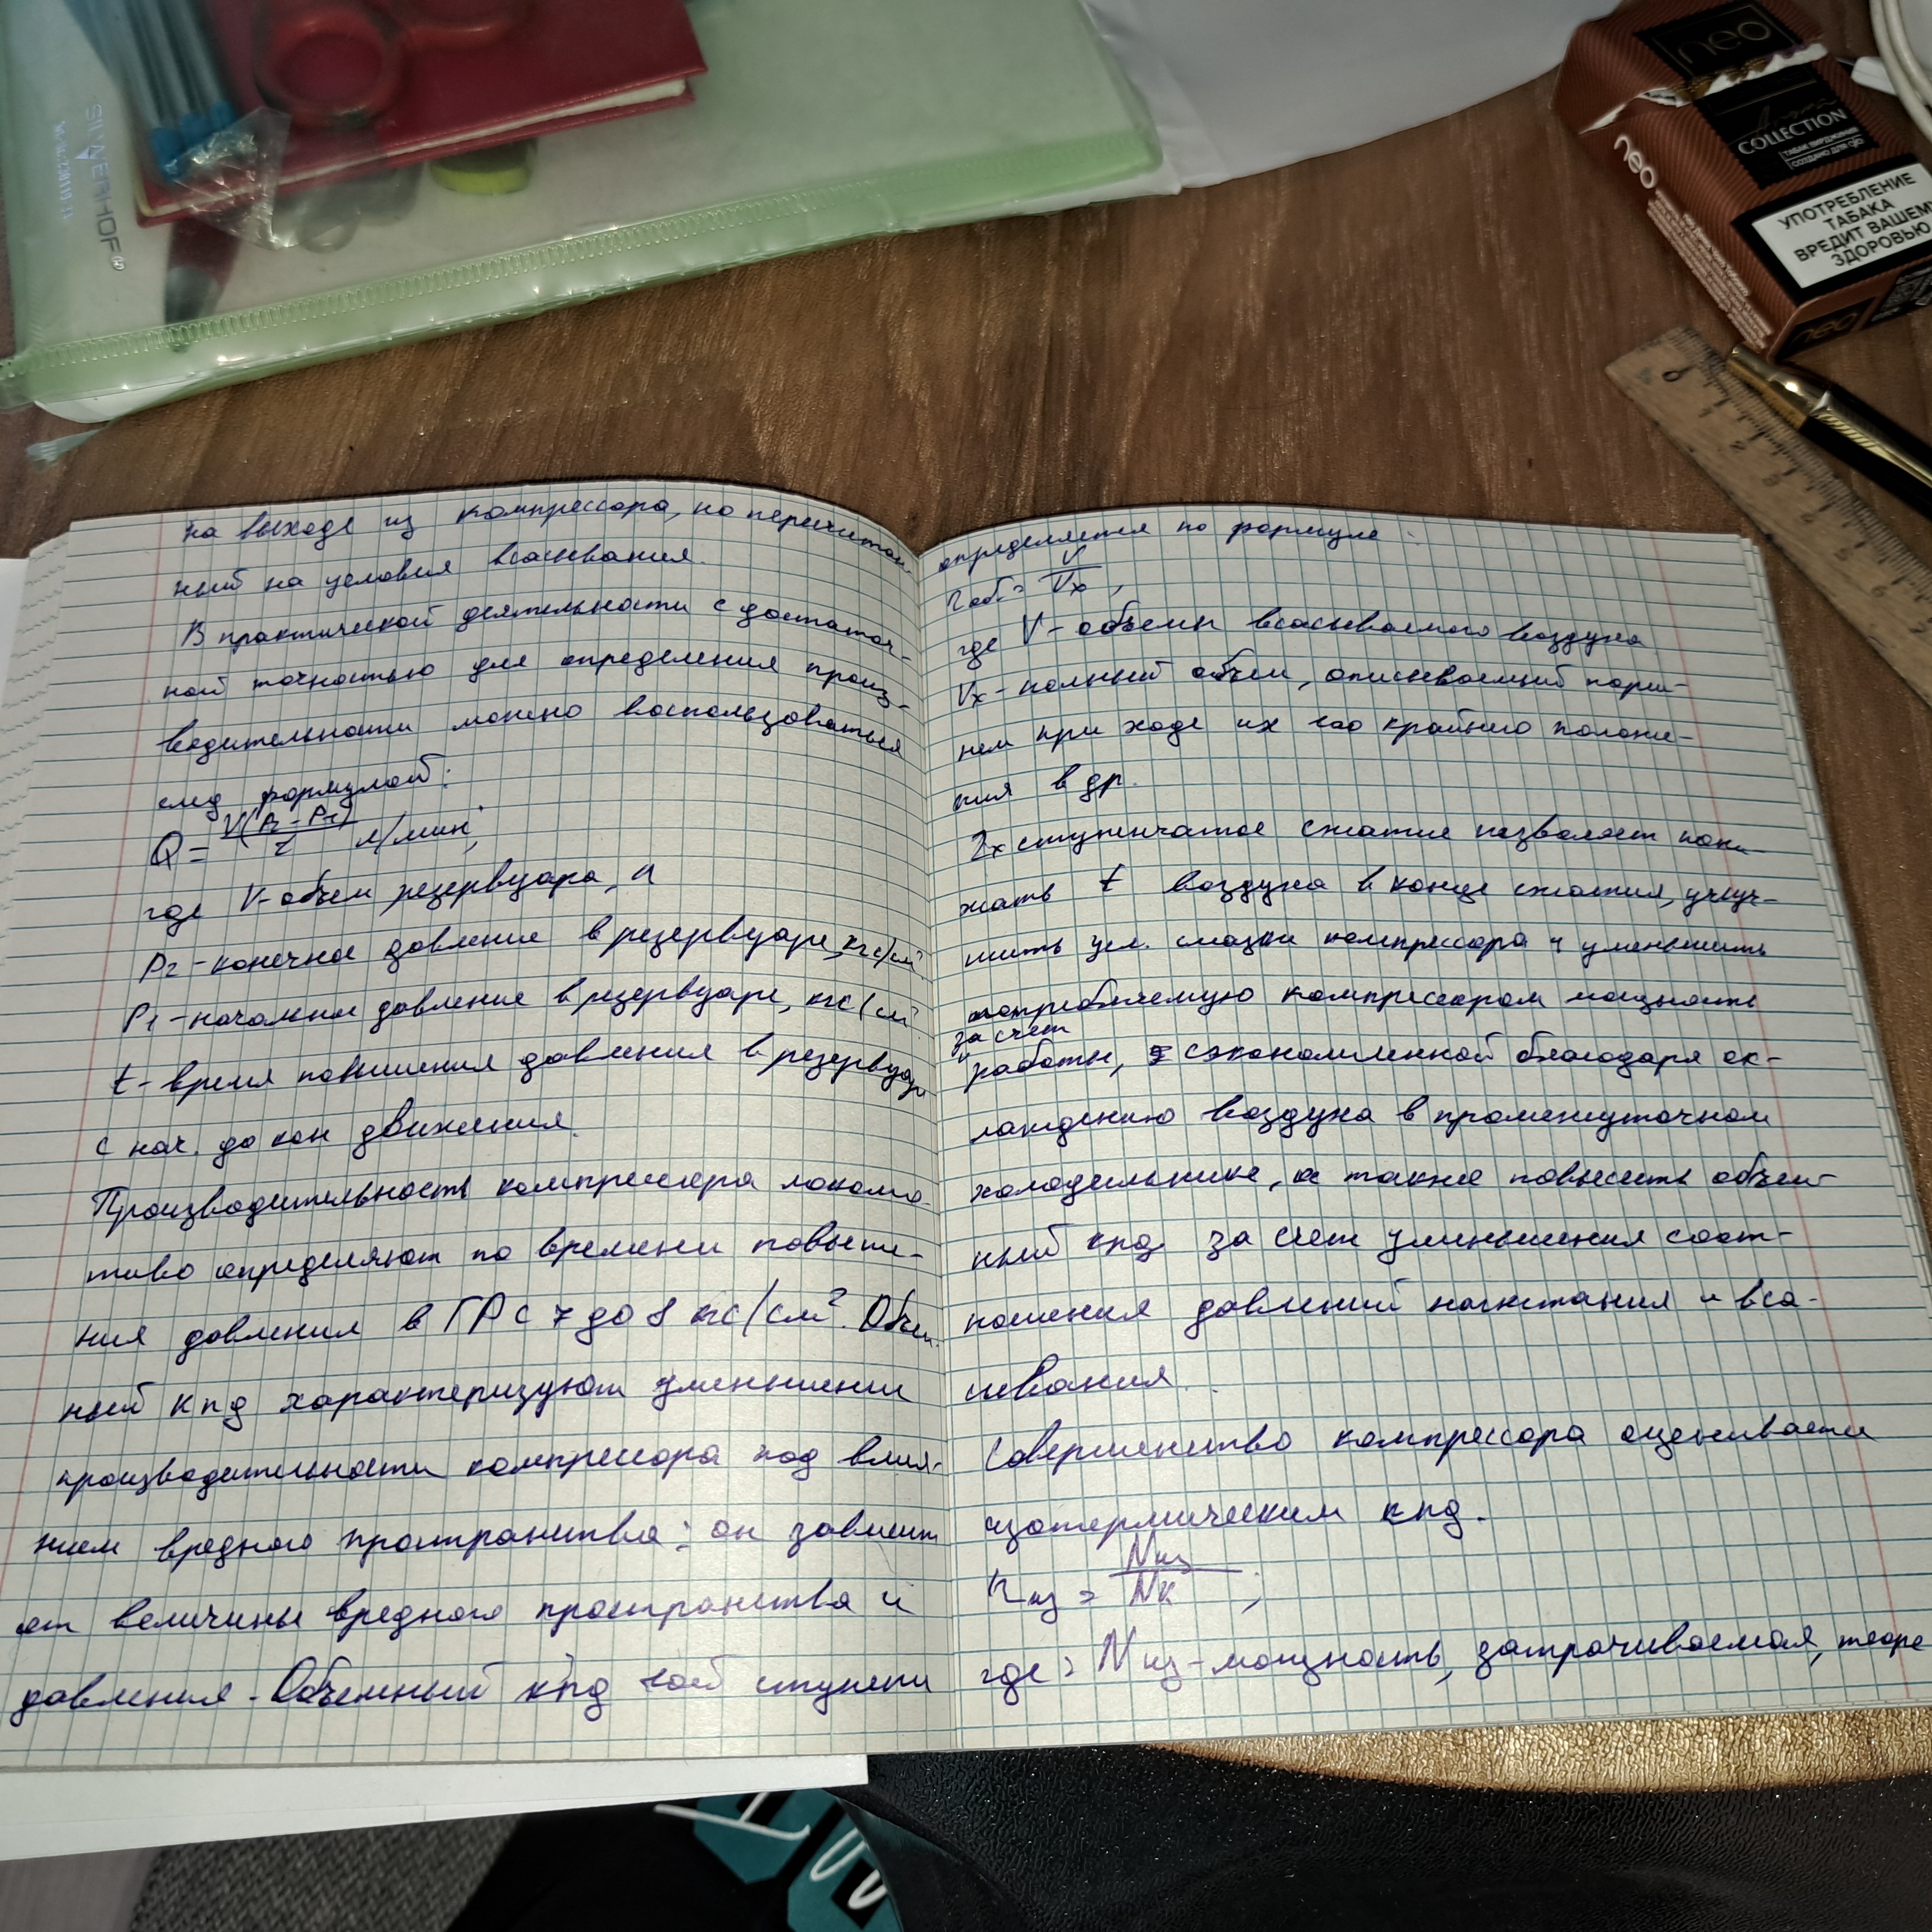 SILWERHOF®
neo
neo
COLLECTION
ТАБАК НАГРЕВАЕМЫЙ
СОЗДАНО ДЛЯ glo
УПОТРЕБЛЕНИЕ
ТАБАКА
ВРЕДИТ ВАШЕМУ
ЗДОРОВЬЮ
neo
0
на выходе из компрессора, но пересчитан-
ный на условия всасывания.
В практической деятельности с достаточ-
ной точностью для определения произ-
водительности можно воспользоваться
след формулой:
Q = V(P2 - P1)/t л/мин;
где V-объем резервуара, л
P2-конечное давление в резервуаре, кгс/см²
P1-начальное давление в резервуаре, кгс/см²
t-время повышения давления в резервуаре
с нач. до кон движения.
Производительность компрессора локомо-
тива определяют по времени повыше-
ния давления в ГР с 7 до 8 кгс/см². Объем-
ный кпд характеризуют уменьшении
производительности компрессора под влия-
нием вредного пространства: он зависит
от величины вредного пространства и
давления. Объемный кпд 1ой ступени
определяется по формуле:
ηоб. = V/Vх,
где V-объемы всасываемого воздуха
Vх-полный объем, описываемый порш-
нем при ходе их 1го крайнего положе-
ния в др.
2х ступенчатое сжатие позволяет пони-
жать t воздуха в конце сжатия, улуч-
шить усл. смазки компрессора и уменьшить
потребляемую компрессором мощность
за счет
работы, сэкономленной благодаря ох-
лаждению воздуха в промежуточном
холодильнике, а также повысить объем-
ный кпд за счет уменьшения соот-
ношения давлений нагнетания и вса-
сывания.
Совершенство компрессора оценивается
изотермическим кпд.
ηиз = Nиз/Nк;
где: Nиз-мощность, затрачиваемая, теоре